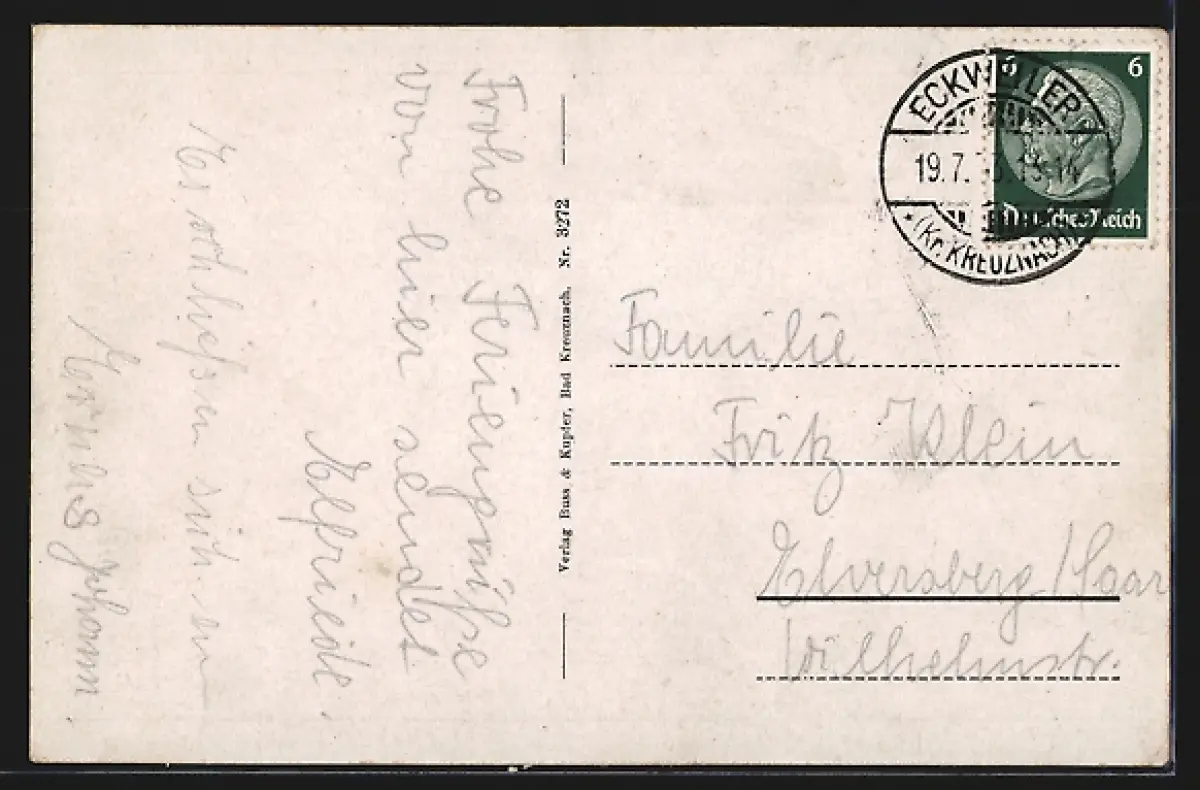 Frohe Feriengrüße
von hier sendet
Elfriede.
Es schließen sich an
Johann.
Verlag Buss & Kupfer, Bad Kreuznach. Nr. 3272
6 6
Deutsches Reich
ECKWEILER
19.7. 13-14
* (Kr. KREUZNACH)
Familie
Fritz Klein
Elversberg / Saar
Wilhelmstr.